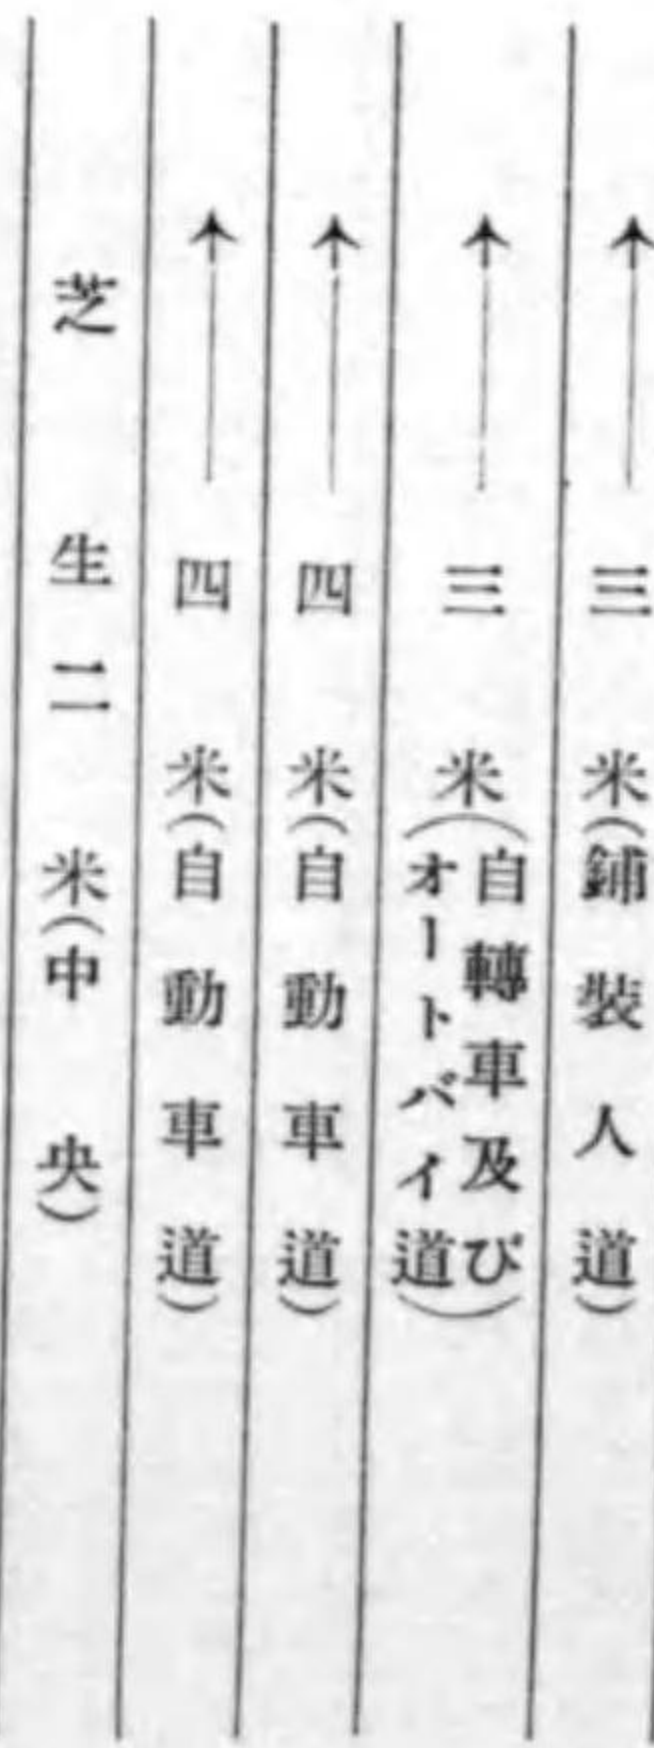 三米(鋪装人道)
三米(自轉車及びオートバイ道)
四米(自動車道)
四米(自動車道)
芝生二米(中央)